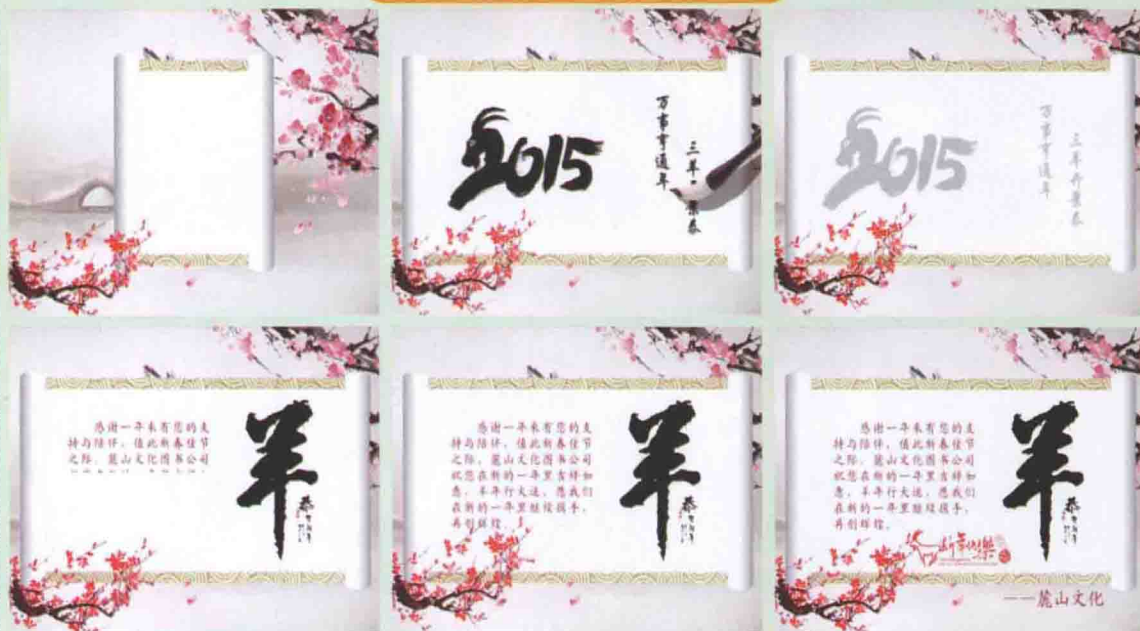 2015
三羊
万事亨通年
2015
三羊开景
万事亨通年
感谢一年来有您的支
持与陪伴，值此新春佳节
之际，麓山文化图书公司
羊
恭
感谢一年来有您的支
持与陪伴，值此新春佳节
之际，麓山文化图书公司
祝您在新的一年里吉祥如
意，羊年行大运，愿我们
在新的一年里继续携手，
再创辉煌。
羊
恭
感谢一年来有您的支
持与陪伴，值此新春佳节
之际，麓山文化图书公司
祝您在新的一年里吉祥如
意，羊年行大运，愿我们
在新的一年里继续携手，
再创辉煌。
羊
恭
新年快樂
——麓山文化